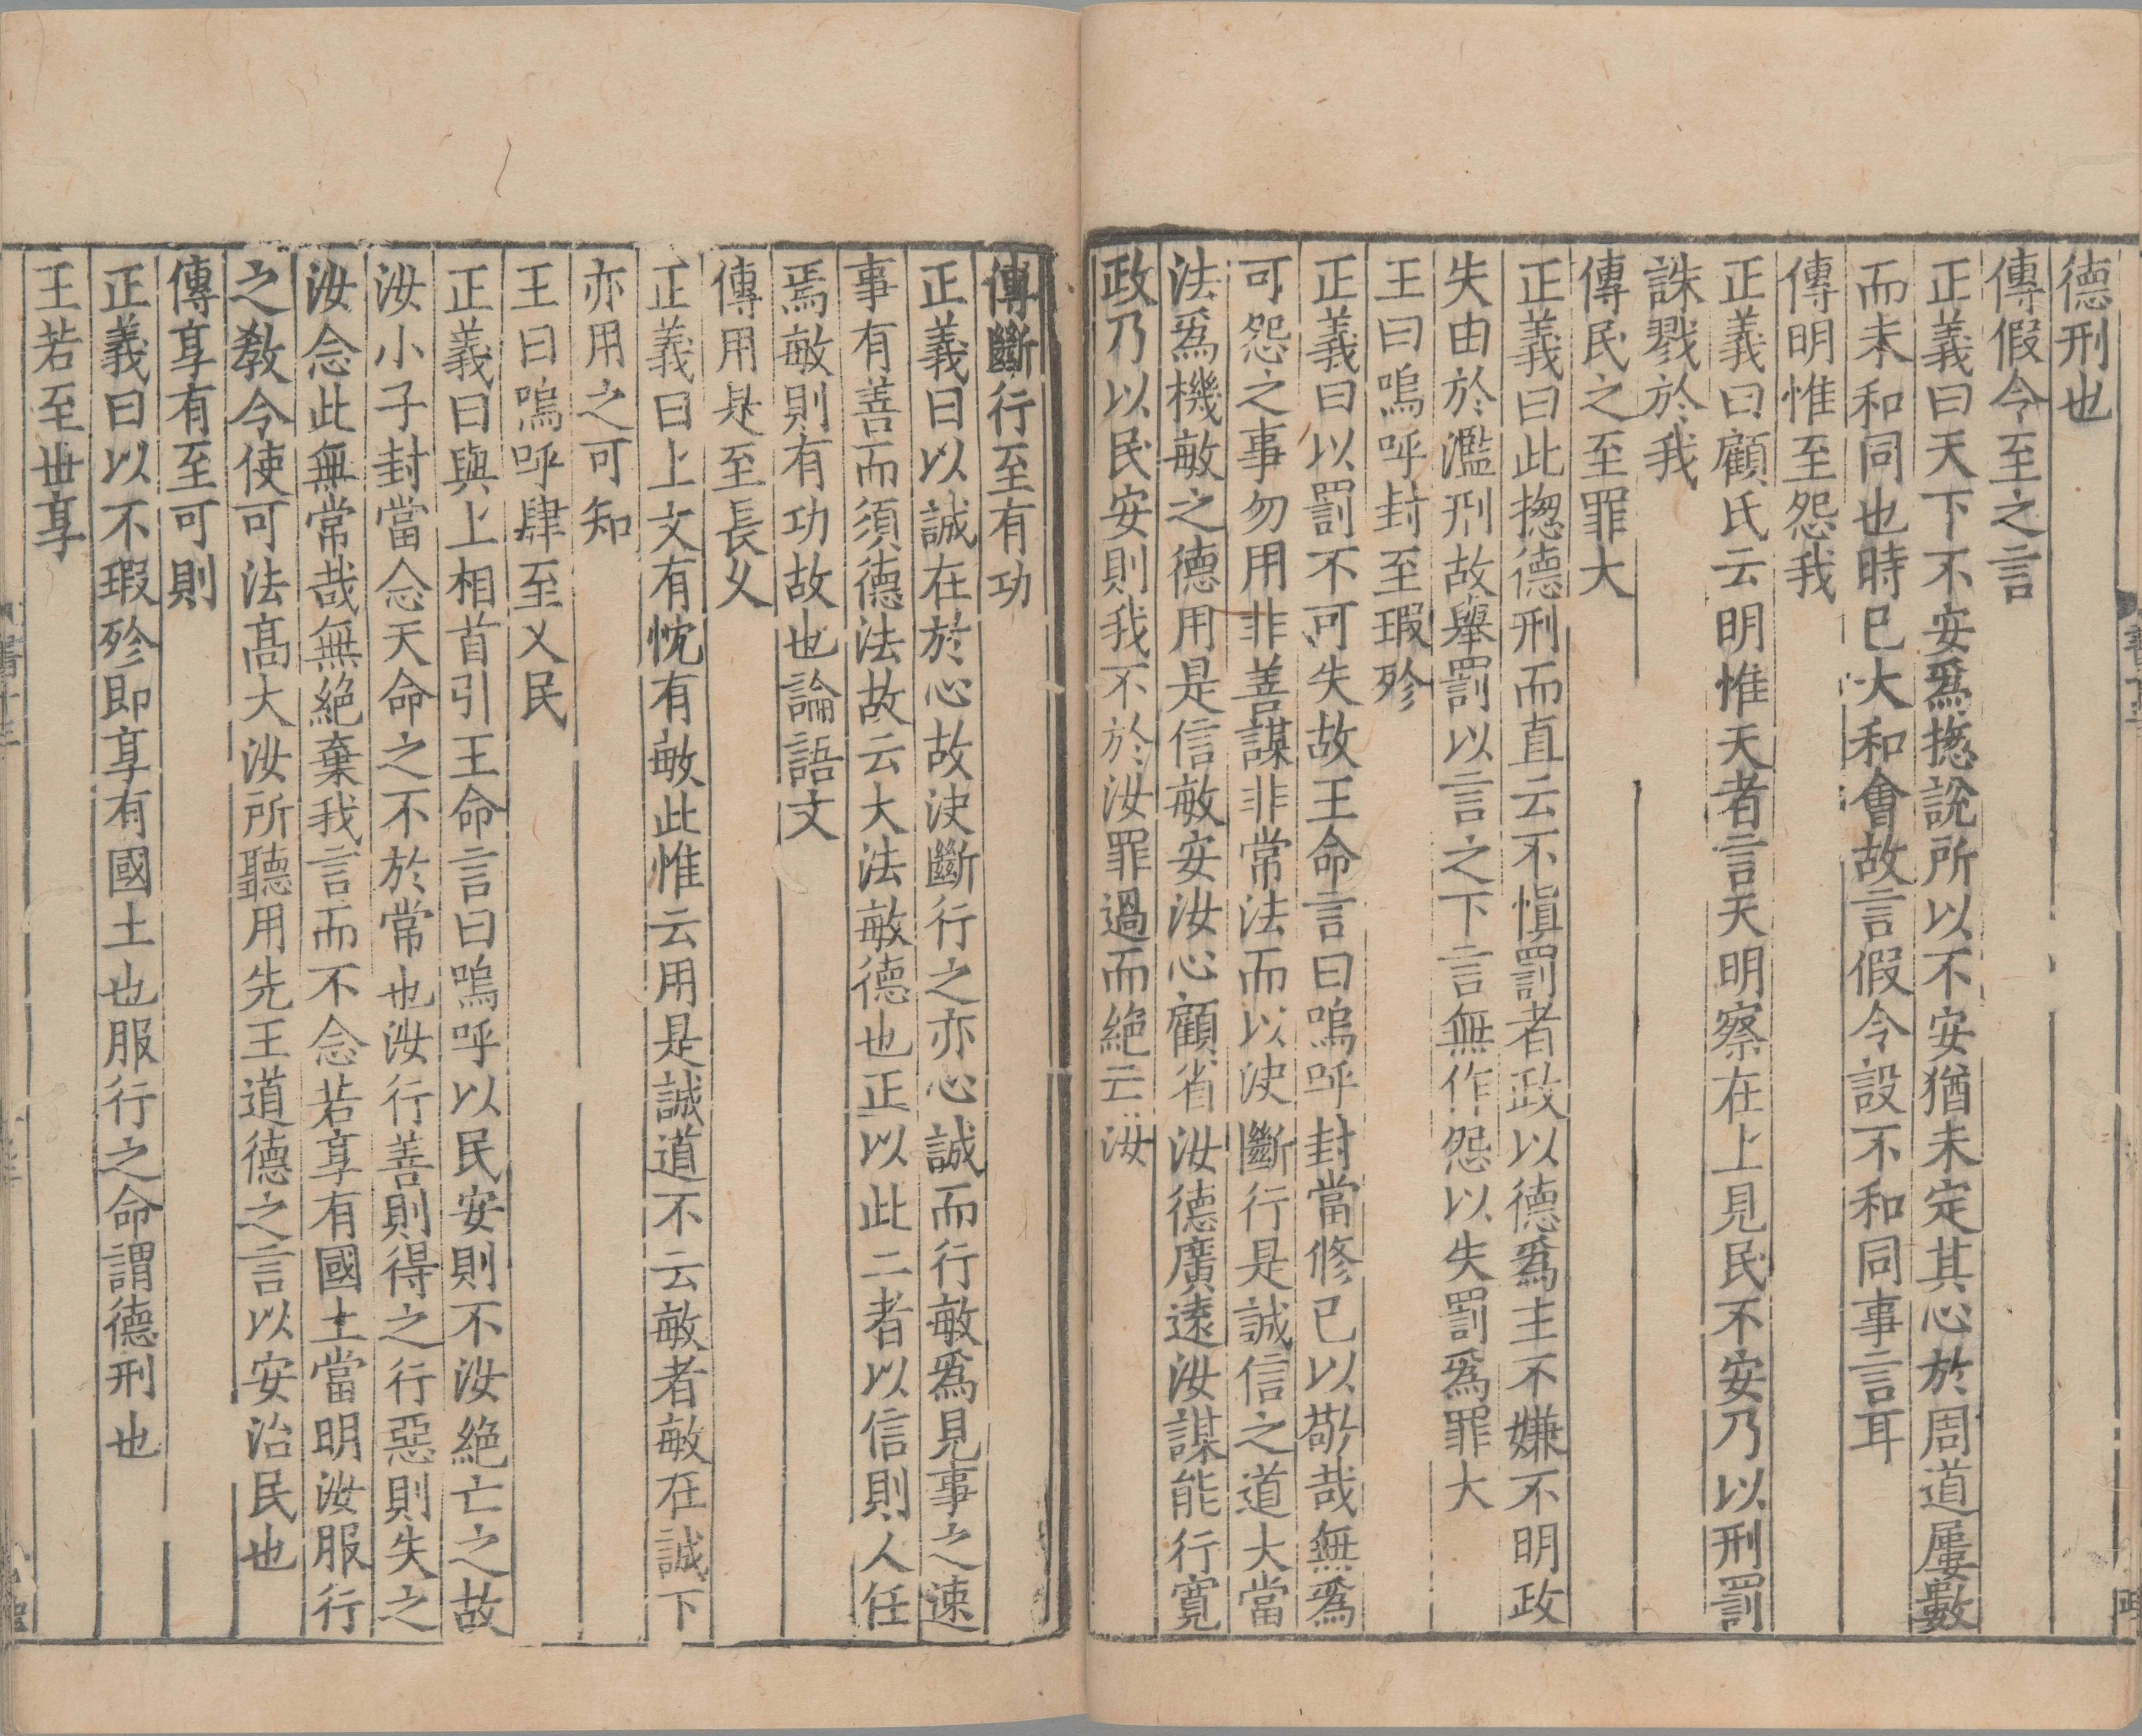 德刑也
傳假令至之言
正義曰天下不安爲揔說所以不安猶未定其心於周道屢數
而未和同也時已大和會故言假令設不和同事言耳
傳明惟至怨我
正義曰顧氏云明惟天者言天明察在上見民不安乃以刑罰
誅戮於我
傳民之至罪大
正義曰此揔德刑而直云不慎罰者政以德爲主不嫌不明政
失由於濫刑故舉罰以言之下言無作怨以失罰爲罪大
王曰嗚呼封至瑕殄
正義曰以罰不可失故王命言曰嗚呼封當修已以敬哉無爲
可怨之事勿用非善謀非常法而以決斷行是誠信之道大當
法爲機敏之德用是信敏安汝心顧省汝德廣遠汝謀能行寬
政乃以民安則我不於汝罪過而絕云汝
傳斷行至有功
正義曰以誠在於心故決斷行之亦心誠而行敏爲見事之速
事有善而須德法故云大法敏德也正以此二者以信則人任
焉敏則有功故也論語文
傳用是至長乂
正義曰上文有忱有敏此惟云用是誠道不云敏者敏在誠下
亦用之可知
王曰嗚呼肆至乂民
正義曰與上相首引王命言曰嗚呼以民安則不汝絕亡之故
汝小子封當念天命之不於常也汝行善則得之行惡則失之
汝念此無常哉無絕棄我言而不念若享有國土當明汝服行
之敎令使可法高大汝所聽用先王道德之言以安治民也
傳享有至可則
正義曰以不瑕殄即享有國土也服行之命謂德刑也
王若至丗享